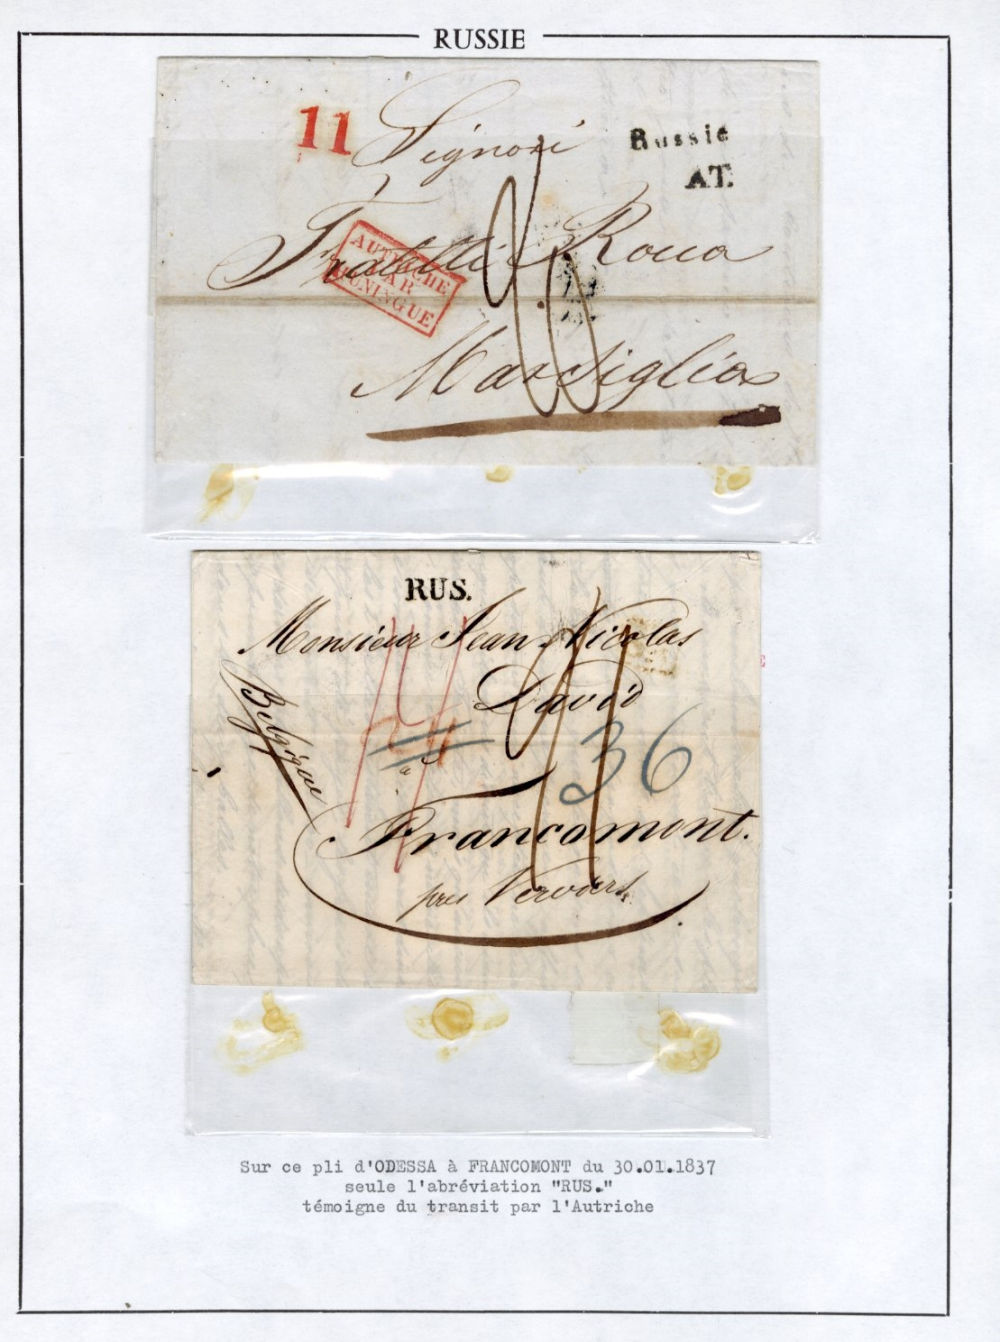 RUSSIE
11
Signori
Russie
AT.
Fratelli Rocca
AUTRICHE
PAR
HUNINGUE
Marsiglia
RUS.
Monsieur Jean Nicolas
David
Belgique
36
à
Francomont.
près Verviers
Sur ce pli d'ODESSA à FRANCOMONT du 30.01.1837
seule l'abréviation "RUS."
témoigne du transit par l'Autriche